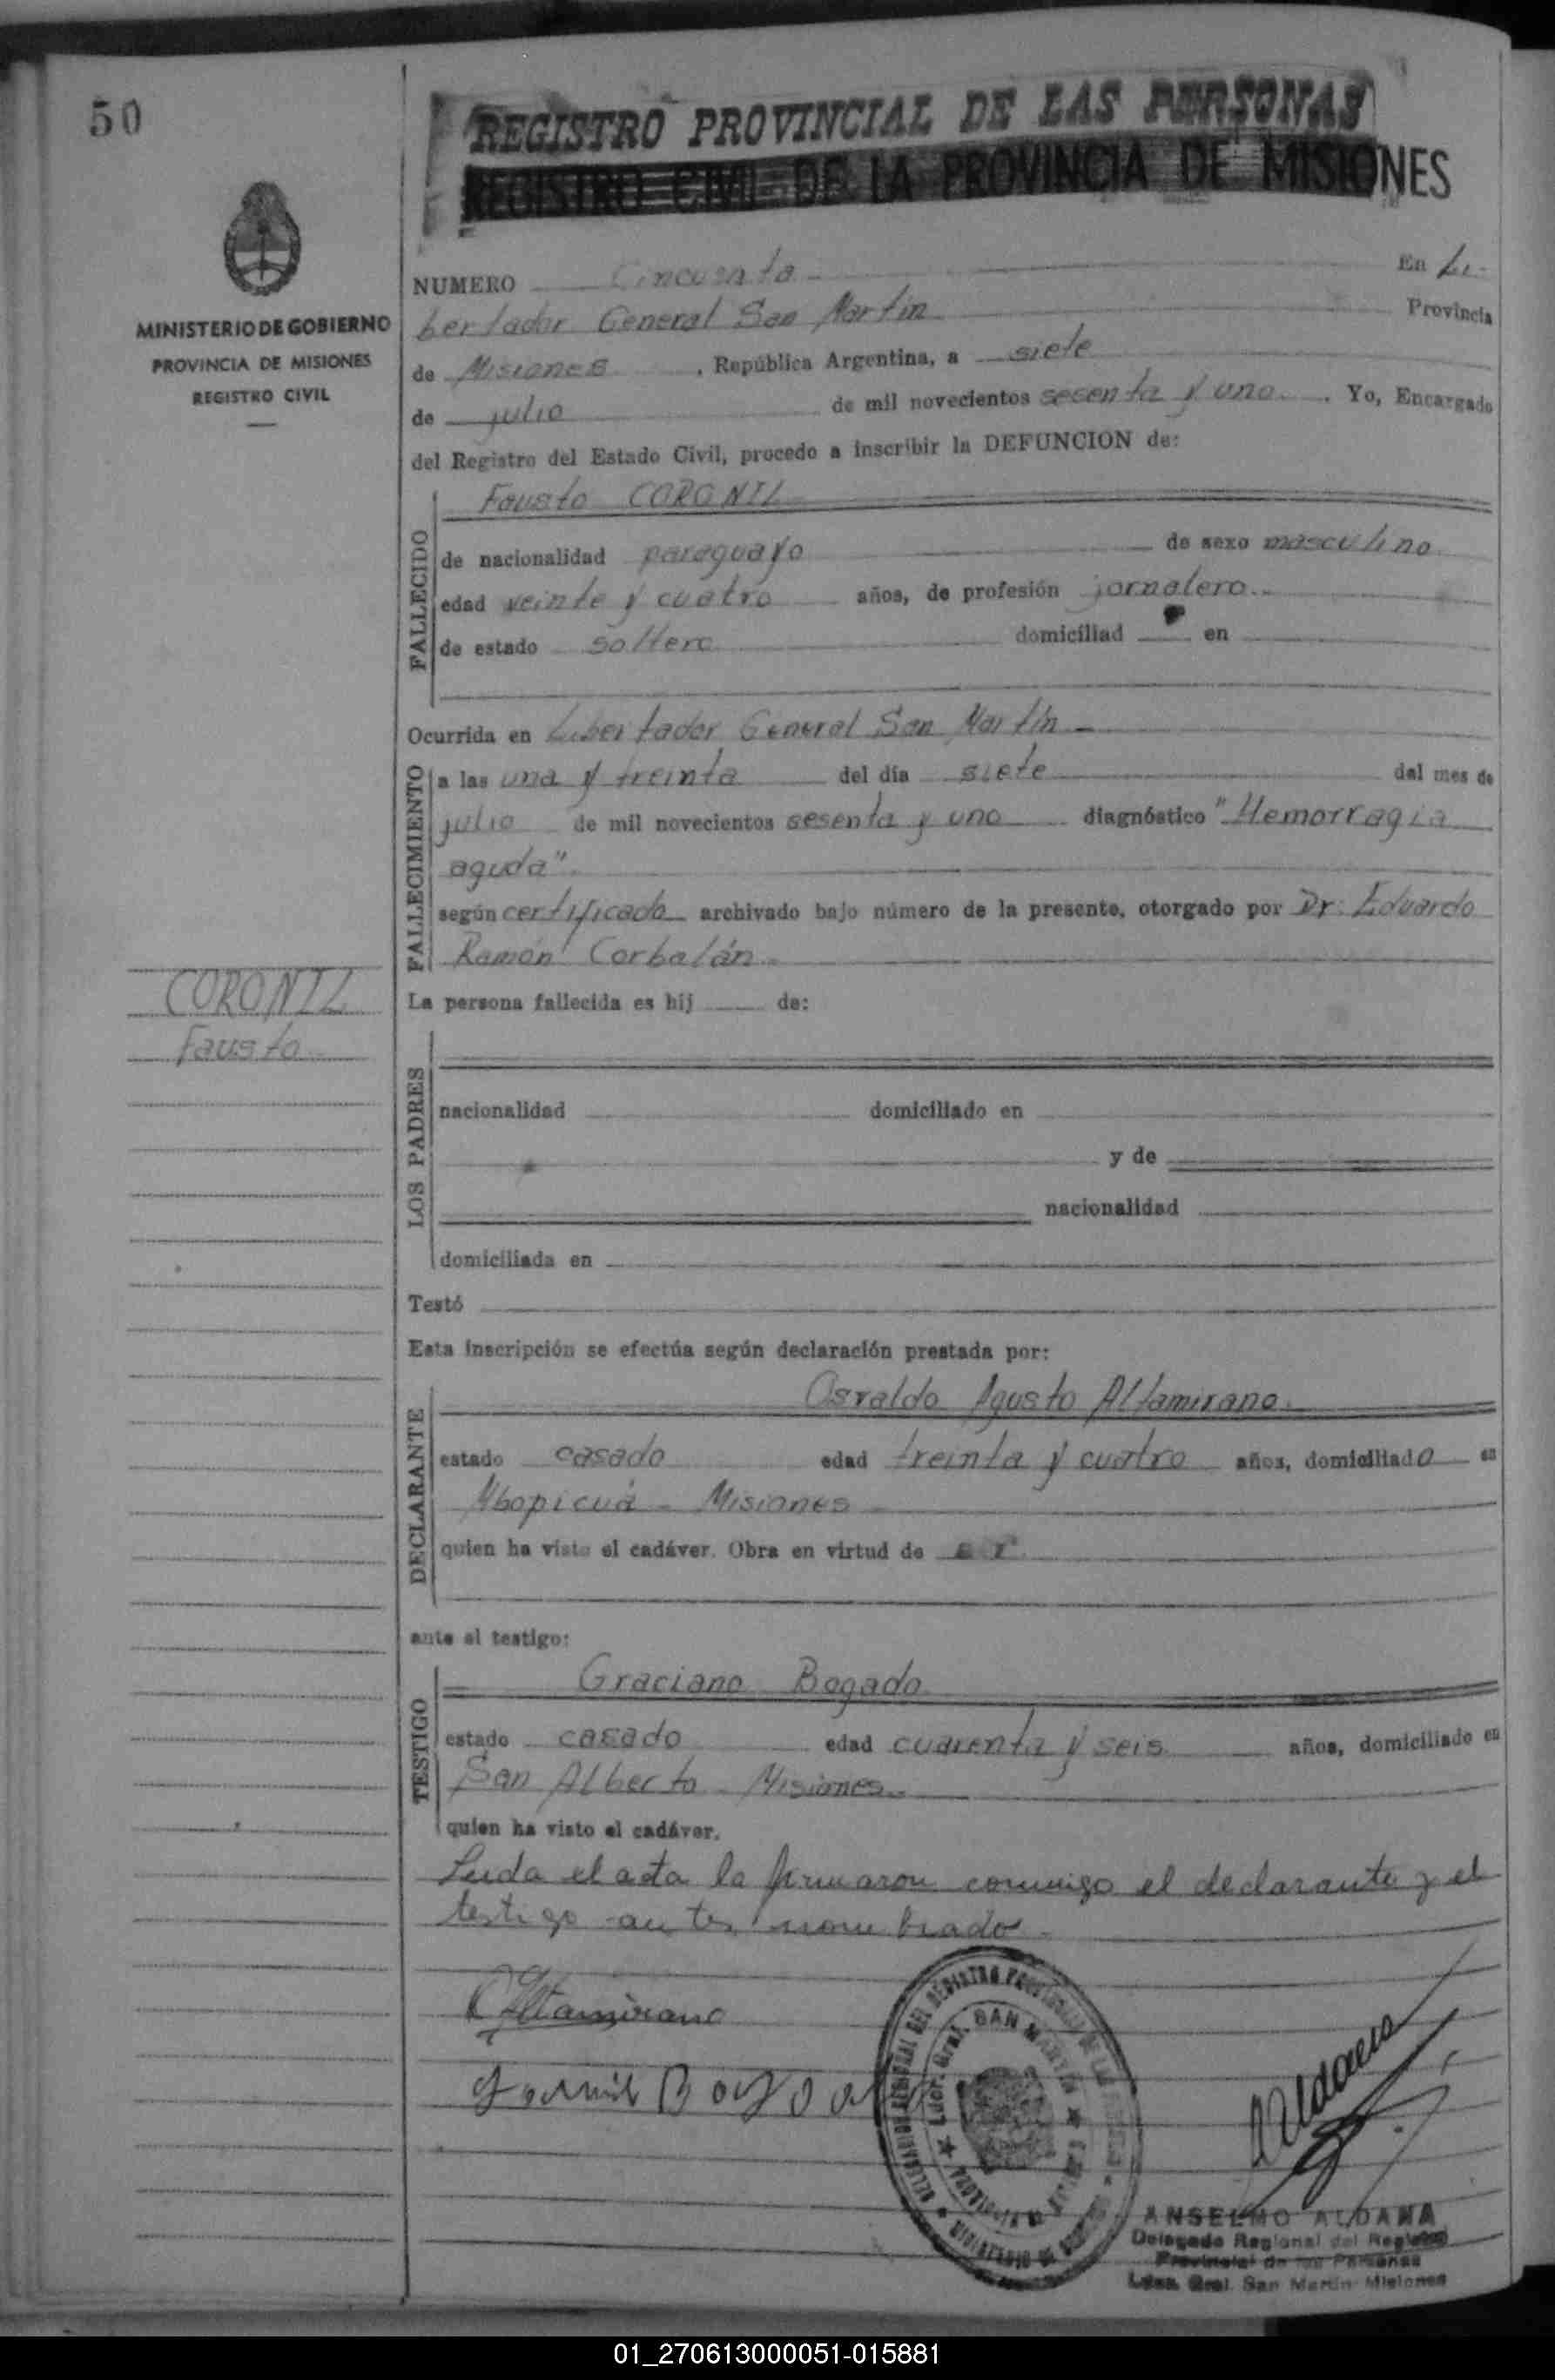 50
REGISTRO PROVINCIAL DE LAS PERSONAS
REGISTRO CIVIL DE LA PROVINCIA DE MISIONES
MINISTERIO DE GOBIERNO
PROVINCIA DE MISIONES
REGISTRO CIVIL
NUMERO Cincuenta En Li-
bertador General San Martín Provincia
de Misiones, República Argentina, a siete
de julio de mil novecientos sesenta y uno. Yo, Encargado
del Registro del Estado Civil, procedo a inscribir la DEFUNCION de:
FALLECIDO
Fausto CORONIL
de nacionalidad paraguayo de sexo masculino
edad veinte y cuatro años, de profesión jornalero
de estado soltero domiciliad en
Ocurrida en Libertador General San Martín
FALLECIMIENTO
a las una y treinta del día siete del mes de
julio de mil novecientos sesenta y uno diagnóstico "Hemorragia
aguda".
según certificado archivado bajo número de la presente, otorgado por Dr. Eduardo
Ramón Corbalán
CORONIL
Fausto
La persona fallecida es hij de:
LOS PADRES
nacionalidad domiciliado en
y de
nacionalidad
domiciliada en
Testó
Esta inscripción se efectúa según declaración prestada por:
DECLARANTE
Osvaldo Agusto Altamirano
estado casado edad treinta y cuatro años, domiciliado en
Mbopicuá - Misiones
quien ha visto el cadáver. Obra en virtud de
ante el testigo:
TESTIGO
Graciano Bogado
estado casado edad cuarenta y seis años, domiciliado en
San Alberto - Misiones
quien ha visto el cadáver.
Leida el acta la firmaron conmigo el declarante y el
testigo antes nombrado
Altamirano
SAN MARTIN
ANSELMO ALDANA
Delegado Regional del Registro
Provincial de las Personas
Ldor. Gral. San Martin Misiones
01_270613000051-015881